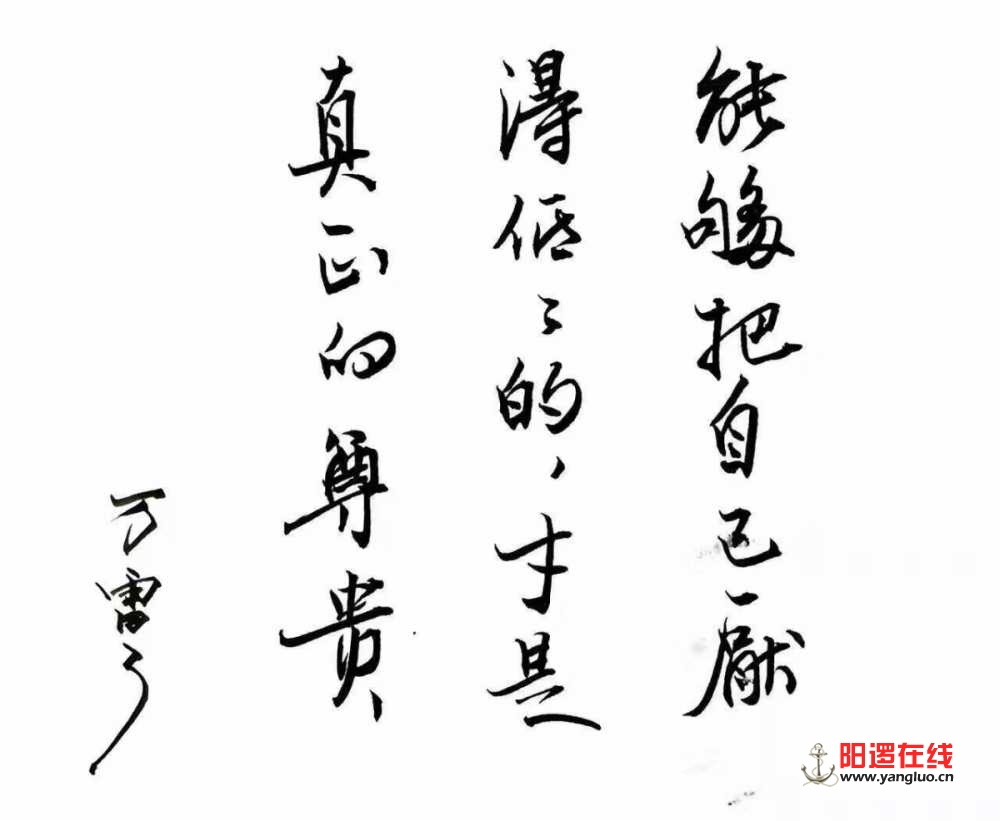 能够把自己厭
得低〻的，才是
真正的尊贵
万雷
阳逻在线
www.yangluo.cn